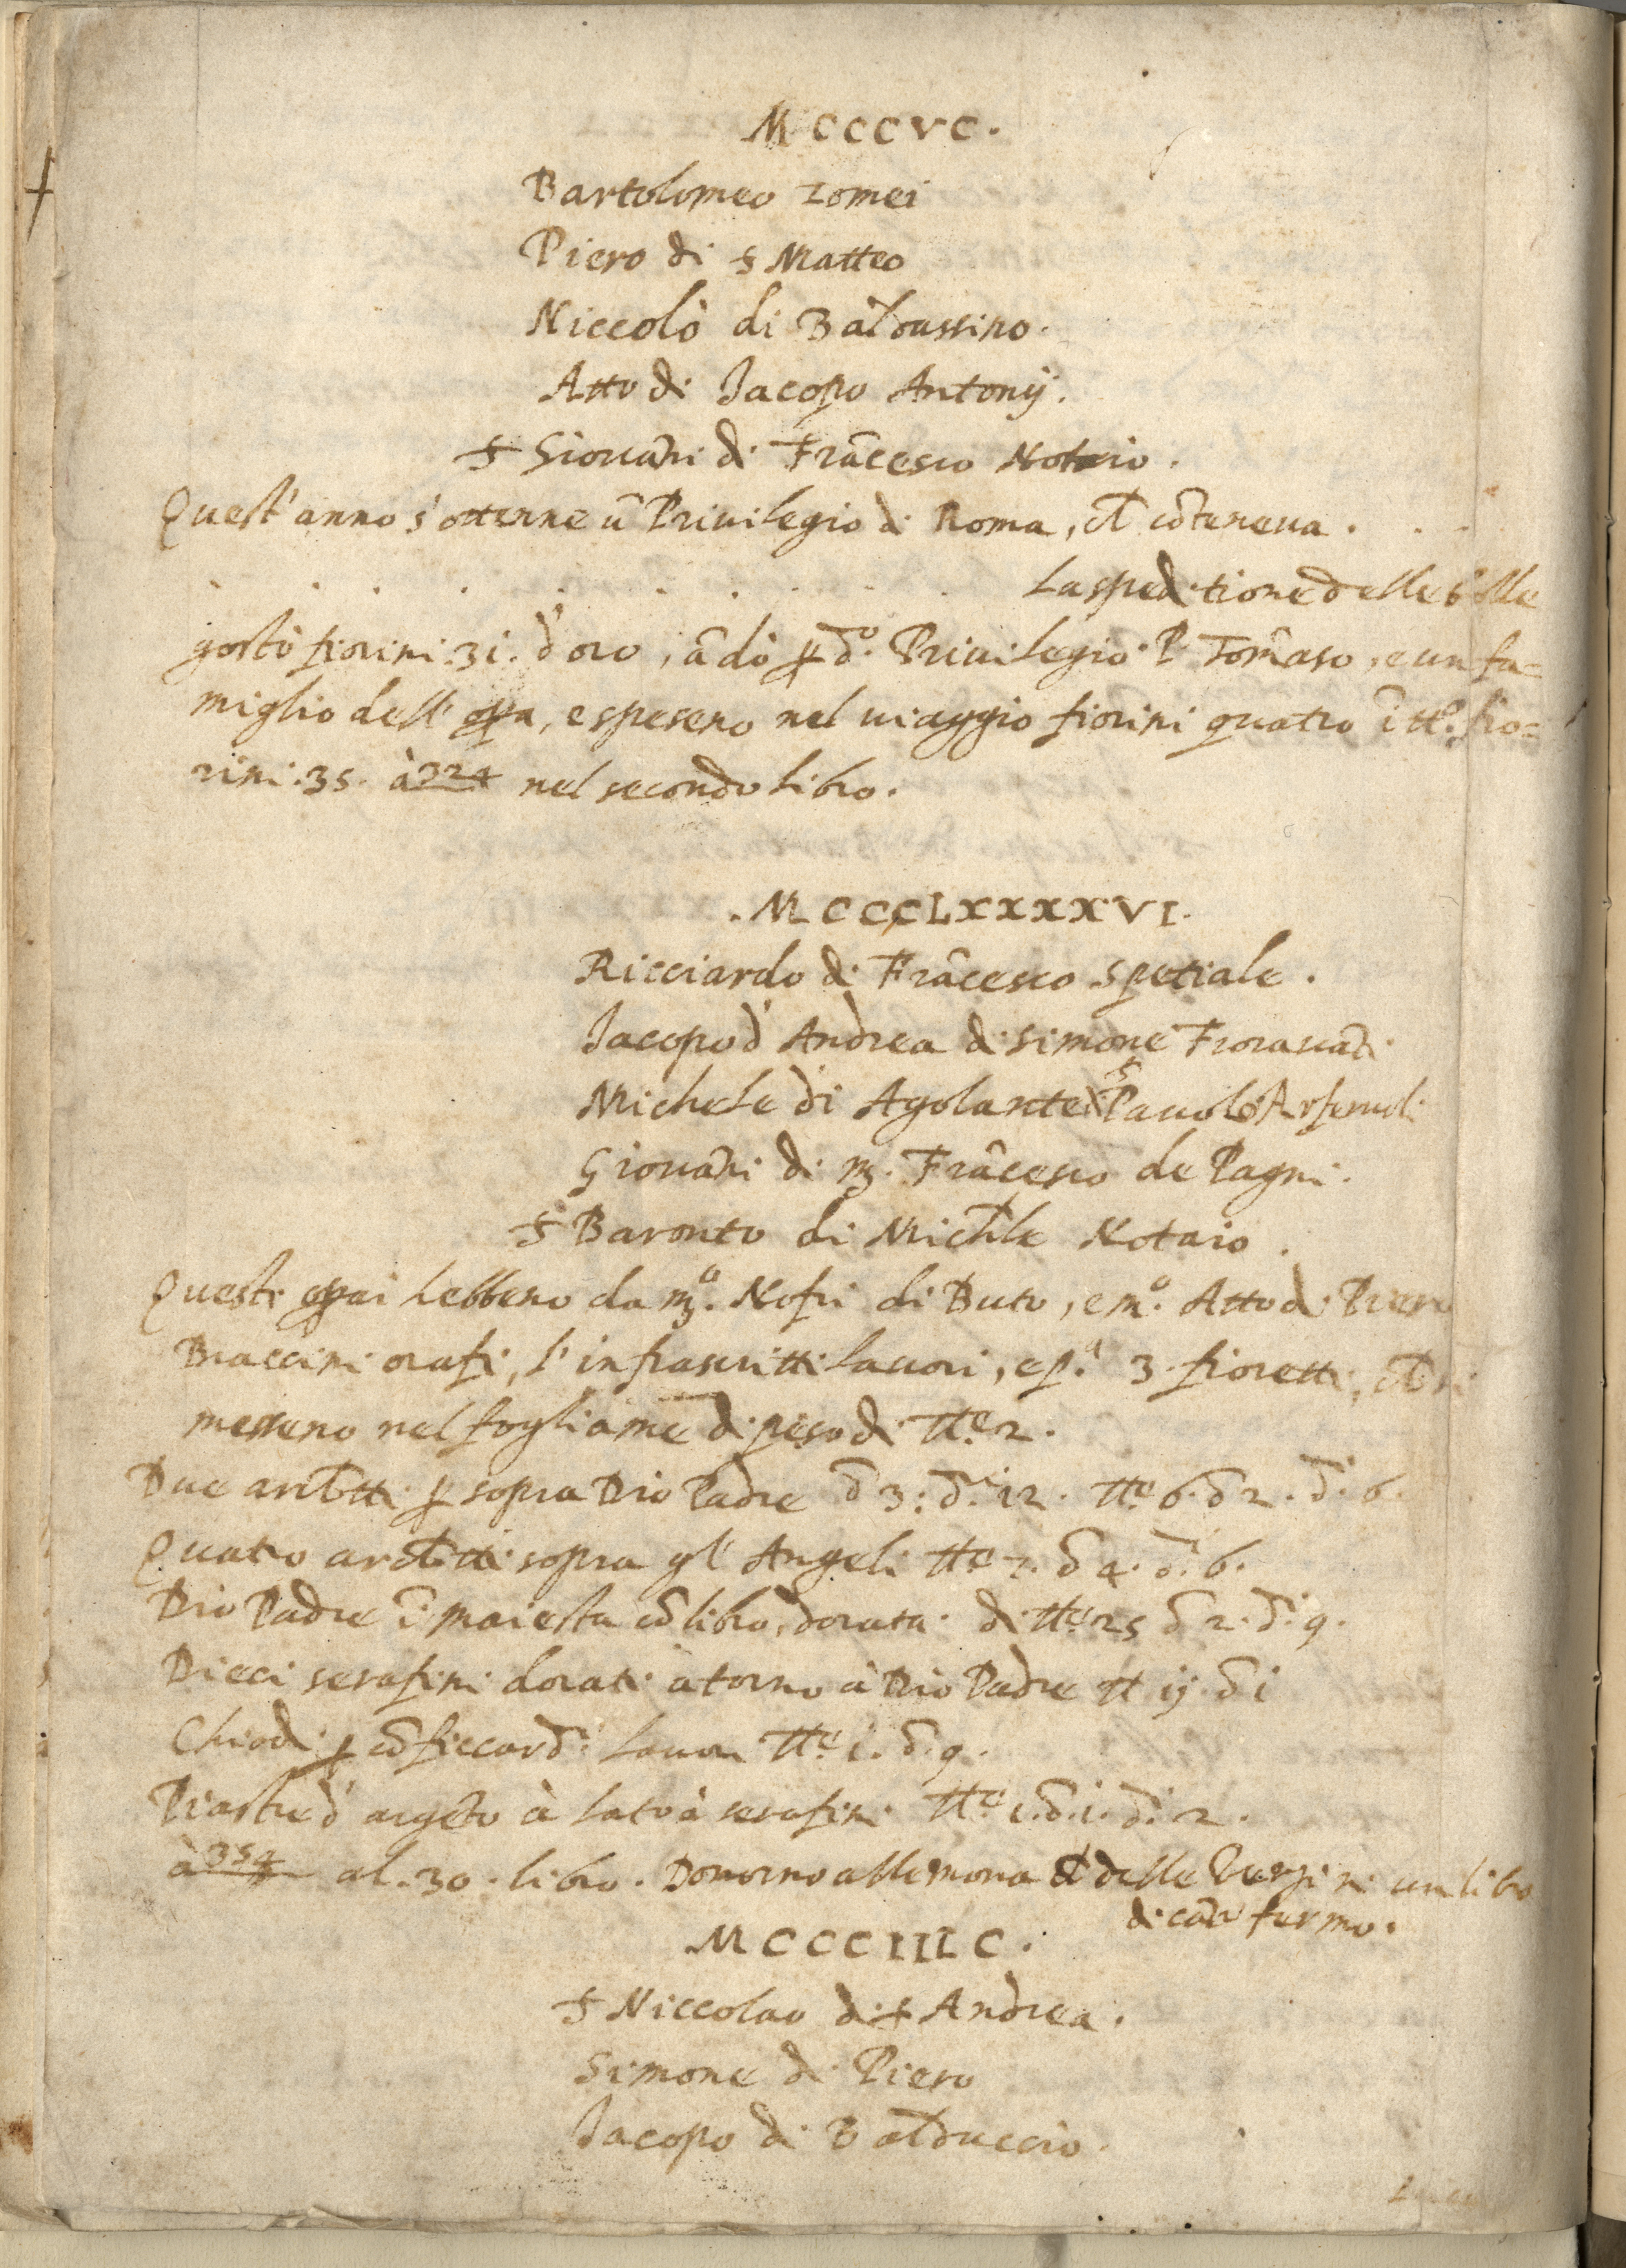 MCCCVC.
Bartolomeo Tomei
Piero di s Matteo
Niccolò di Baldassino.
Atto di Jacopo Antonij.
s Giouãni di Frãcesco Notaio.
Quest'anno s'ottenne ũ Priuilegio di Roma, ch̃ cõteneua . . .
. . . . . . . . . La speditione delle bolle
gostò fiorini .31. d'oro, ãdò p d.º Priuilegio P. Tomaso, e un fa=
miglio dell' opa, e speseno nel uiaggio fiorini quatro ĩ tt.º fio=
rini .35. à 324 nel secondo libro.
.MCCCLXXXXVI.
Ricciardo di Frãcesco spetiale.
Jacopo d' Andrea di Simone Fiorauãti
Michele di Agolante di s Pauolo
Giouãni di m. Frãcesco de Pagni.
s Baronto di Mich̃le Notaio.
Questi opai hebbeno da m.º Nofri di Buto, e m.º Atto di Piero
Braccini orafi, l'infrascritti lauori, e p.ª 3 fioretti, ch̃ si
messeno nel fogliame di peso di tt.e 2.
Due arch̃tti p sopra Dio Padre d 3: d.i 12. tt.e 6. d 2. d.i 6.
Quatro arch̃tti sopra gl' Angeli tt.e 7. d 4. d.i 6.
Dio Padre ĩ maiesta cõ libro, dorata di tt.e 25 d 2. d.i 9.
Dieci serafini dorati atorno à Dio Padre tt ij. d i
Chiodi p cõficcar d.i lauori tt.e i. d. 9.
Piastre d' argẽto à lato à serafini tt.e i. d. i. d.i 2.
à 354 al .30. libro. Donorno alle mona ch̃ delle Vergini un libro
di cãto fermo.
MCCCIIIC.
s Niccolao di s Andrea.
Simone di Piero
Jacopo di Balduccio.